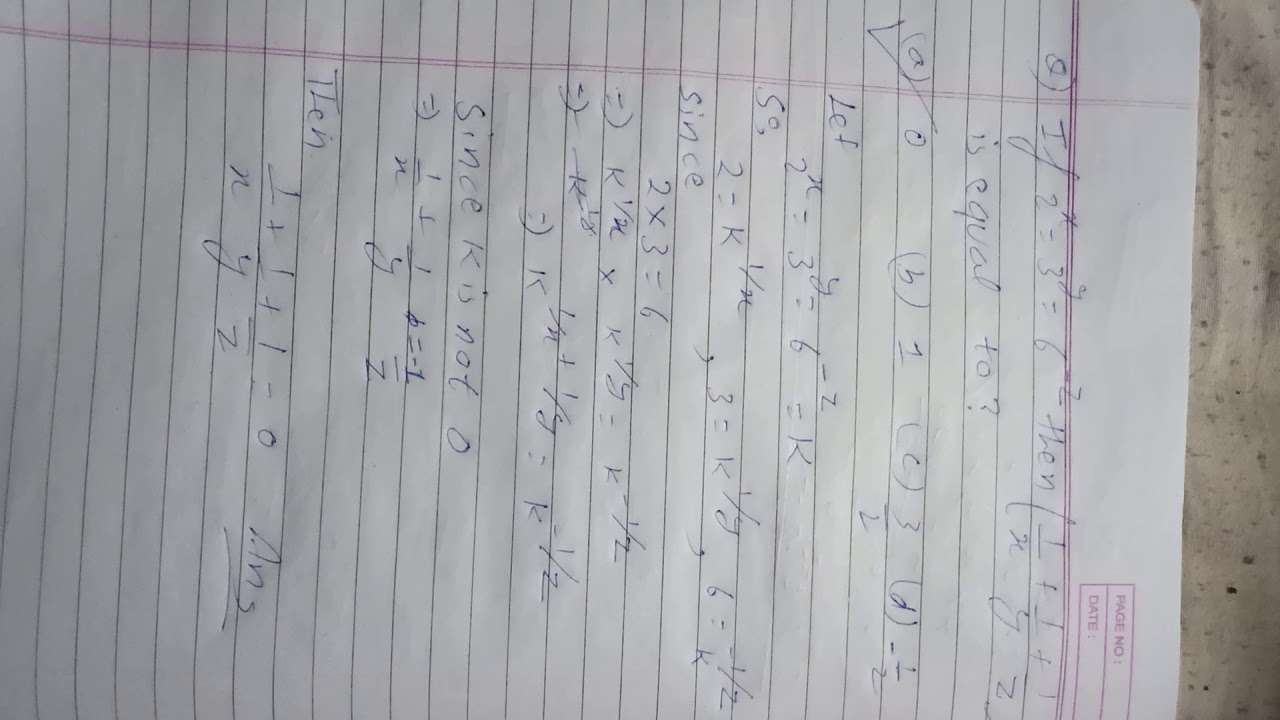 PAGE NO :
DATE :
Q) If 2^x = 3^y = 6^-z then (1/x + 1/y + 1/z
is equal to?
(a) 0 (b) 1 (c) 3/2 (d) -1/2
Let
2^x = 3^y = 6^-z = K
So,
2 = K^1/x , 3 = K^1/y , 6 = K^-1/z
Since
2 × 3 = 6
=) K^1/x × K^1/y = K^-1/z
=)
=) K^1/x + 1/y = K^-1/z
Since K is not 0
=) 1/x + 1/y = -1/z
Then
1/x + 1/y + 1/z - 0 Ans